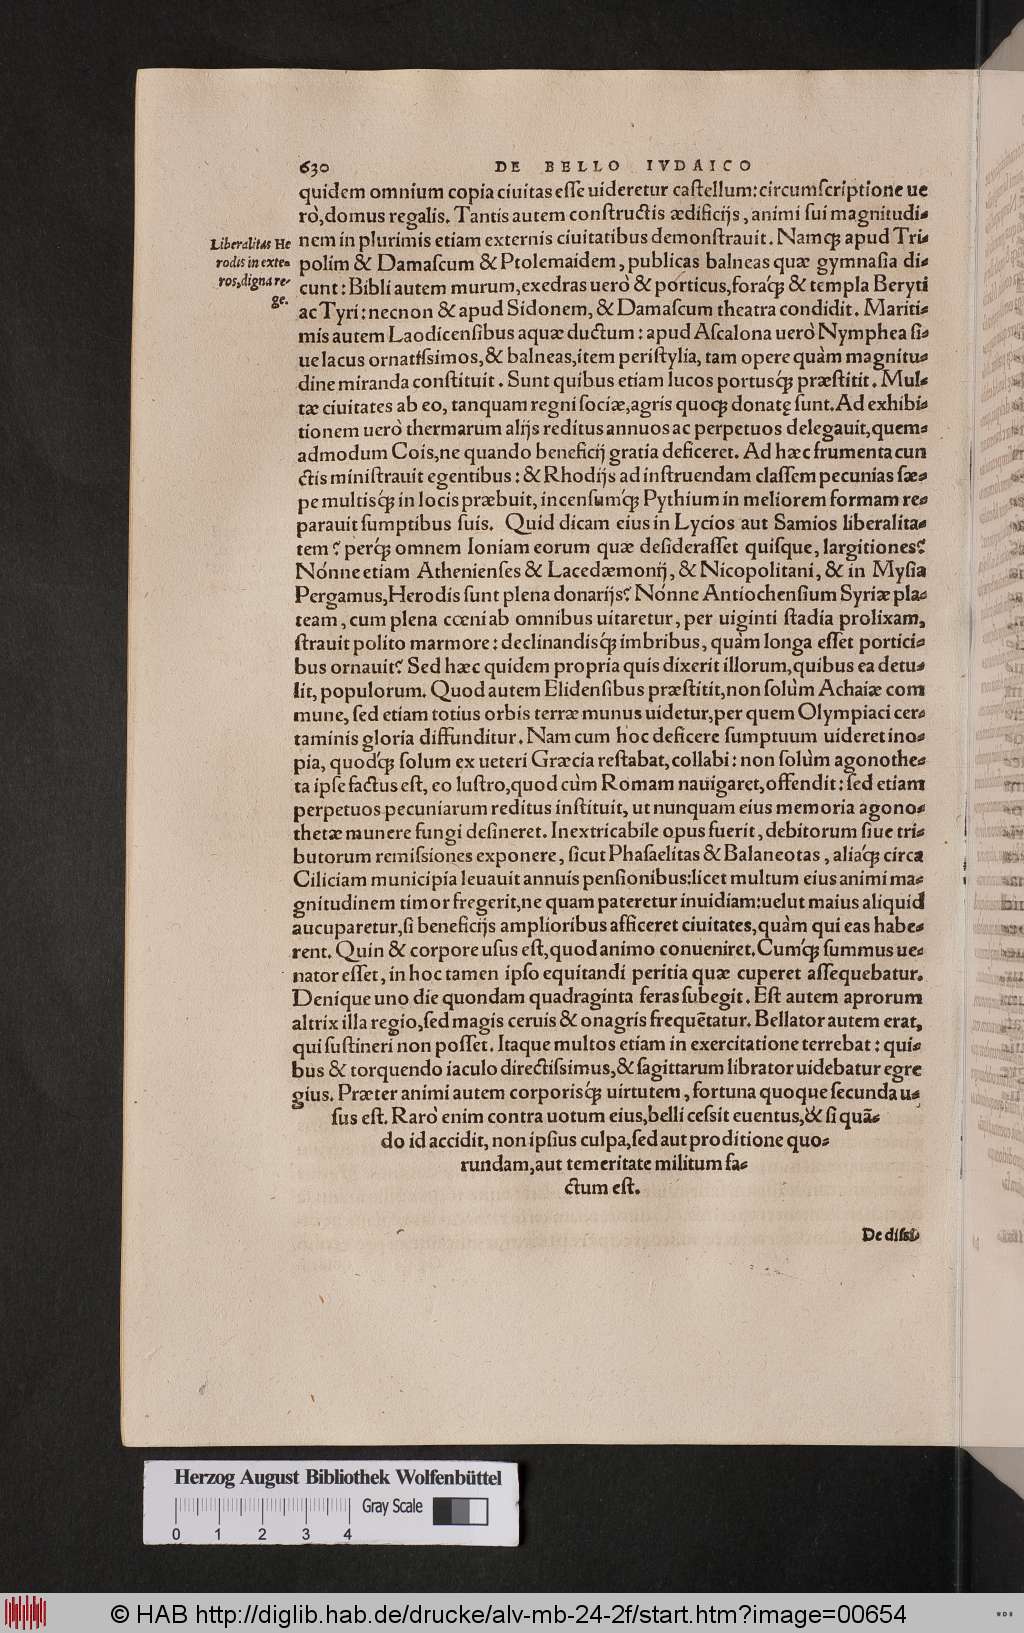 630 DE BELLO IVDAICO
quidem omnium copia ciuitas eſſe uideretur caſtellum: circumſcriptione ue
rò, domus regalis. Tantis autem conſtructis ædificijs, animi ſui magnitudi-
Liberalitas He
rodis in exte-
ros, digna re-
ge.
nem in plurimis etiam externis ciuitatibus demonſtrauit. Namq́; apud Tri-
polim & Damaſcum & Ptolemaidem, publicas balneas quæ gymnaſia di-
cunt: Bibli autem murum, exedras uerò & porticus, foraq́; & templa Beryti
ac Tyri: necnon & apud Sidonem, & Damaſcum theatra condidit. Mariti-
mis autem Laodicenſibus aquæ ductum: apud Aſcalona uerò Nymphea ſi-
ue lacus ornatiſsimos, & balneas, item periſtylia, tam opere quàm magnitu-
dine miranda conſtituit. Sunt quibus etiam lucos portusq́; præſtitit. Mul-
tæ ciuitates ab eo, tanquam regni ſociæ, agris quoq; donatę ſunt. Ad exhibi-
tionem uerò thermarum alijs reditus annuos ac perpetuos delegauit, quem-
admodum Cois, ne quando beneficij gratia deficeret. Ad hæc frumenta cun
ctis miniſtrauit egentibus: & Rhodijs ad inſtruendam claſſem pecunias ſæ-
pe multisq́; in locis præbuit, incenſumq́; Pythium in meliorem formam re-
parauit ſumptibus ſuis. Quid dicam eius in Lycios aut Samios liberalita-
tem? perq́; omnem Ioniam eorum quæ deſideraſſet quiſque, largitiones?
Nónne etiam Athenienſes & Lacedæmonij, & Nicopolitani, & in Myſia
Pergamus, Herodis ſunt plena donarijs? Nónne Antiochenſium Syriæ pla-
team, cum plena cœni ab omnibus uitaretur, per uiginti ſtadia prolixam,
ſtrauit polito marmore: declinandisq́; imbribus, quàm longa eſſet portici-
bus ornauit? Sed hæc quidem propria quis dixerit illorum, quibus ea detu-
lit, populorum. Quod autem Elidenſibus præſtitit, non ſolùm Achaiæ com
mune, ſed etiam totius orbis terræ munus uidetur, per quem Olympiaci cer-
taminis gloria diffunditur. Nam cum hoc deficere ſumptuum uideret ino-
pia, quodq́; ſolum ex ueteri Græcia reſtabat, collabi: non ſolùm agonothe-
ta ipſe factus eſt, eo luſtro, quod cùm Romam nauigaret, offendit: ſed etiam
perpetuos pecuniarum reditus inſtituit, ut nunquam eius memoria agono-
thetæ munere fungi deſineret. Inextricabile opus fuerit, debitorum ſiue tri-
butorum remiſsiones exponere, ſicut Phaſaelitas & Balaneotas, aliaq́; circa
Ciliciam municipia leuauit annuis penſionibus: licet multum eius animi ma-
gnitudinem timor fregerit, ne quam pateretur inuidiam: uelut maius aliquid
aucuparetur, ſi beneficijs amplioribus afficeret ciuitates, quàm qui eas habe-
rent. Quin & corpore uſus eſt, quod animo conueniret. Cumq́; ſummus ue-
nator eſſet, in hoc tamen ipſo equitandi peritia quæ cuperet aſſequebatur.
Denique uno die quondam quadraginta feras ſubegit. Eſt autem aprorum
altrix illa regio, ſed magis ceruis & onagris frequẽtatur. Bellator autem erat,
qui ſuſtineri non poſſet. Itaque multos etiam in exercitatione terrebat: qui-
bus & torquendo iaculo directiſsimus, & ſagittarum librator uidebatur egre
gius. Præter animi autem corporisq́; uirtutem, fortuna quoque ſecunda u-
ſus eſt. Rarò enim contra uotum eius, belli ceſsit euentus, & ſi quã-
do id accidit, non ipſius culpa, ſed aut proditione quo-
rundam, aut temeritate militum fa-
ctum eſt.
De diſsi-
Herzog August Bibliothek Wolfenbüttel
Gray Scale
0 1 2 3 4
© HAB http://diglib.hab.de/drucke/alv-mb-24-2f/start.htm?image=00654